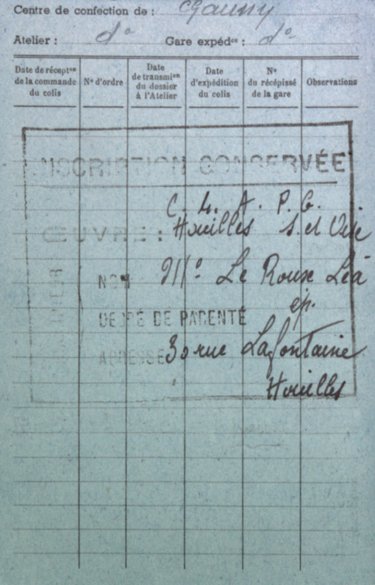 Centre de confection de : Chauny
Atelier : do Gare expédre : do
Date de récepton de la commande du colis
No d'ordre
Date de transmion du dossier à l'Atelier
Date d'expédition du colis
No du récépissé de la gare
Observations
INSCRIPTION CONSERVÉE
C. L. A. P. G.
ŒUVRE : Houilles S. et Oise
NOM Mlle Le Roux Léa
DEGRÉ DE PARENTÉ ep.
ADRESSE 30 rue Lafontaine
Houilles